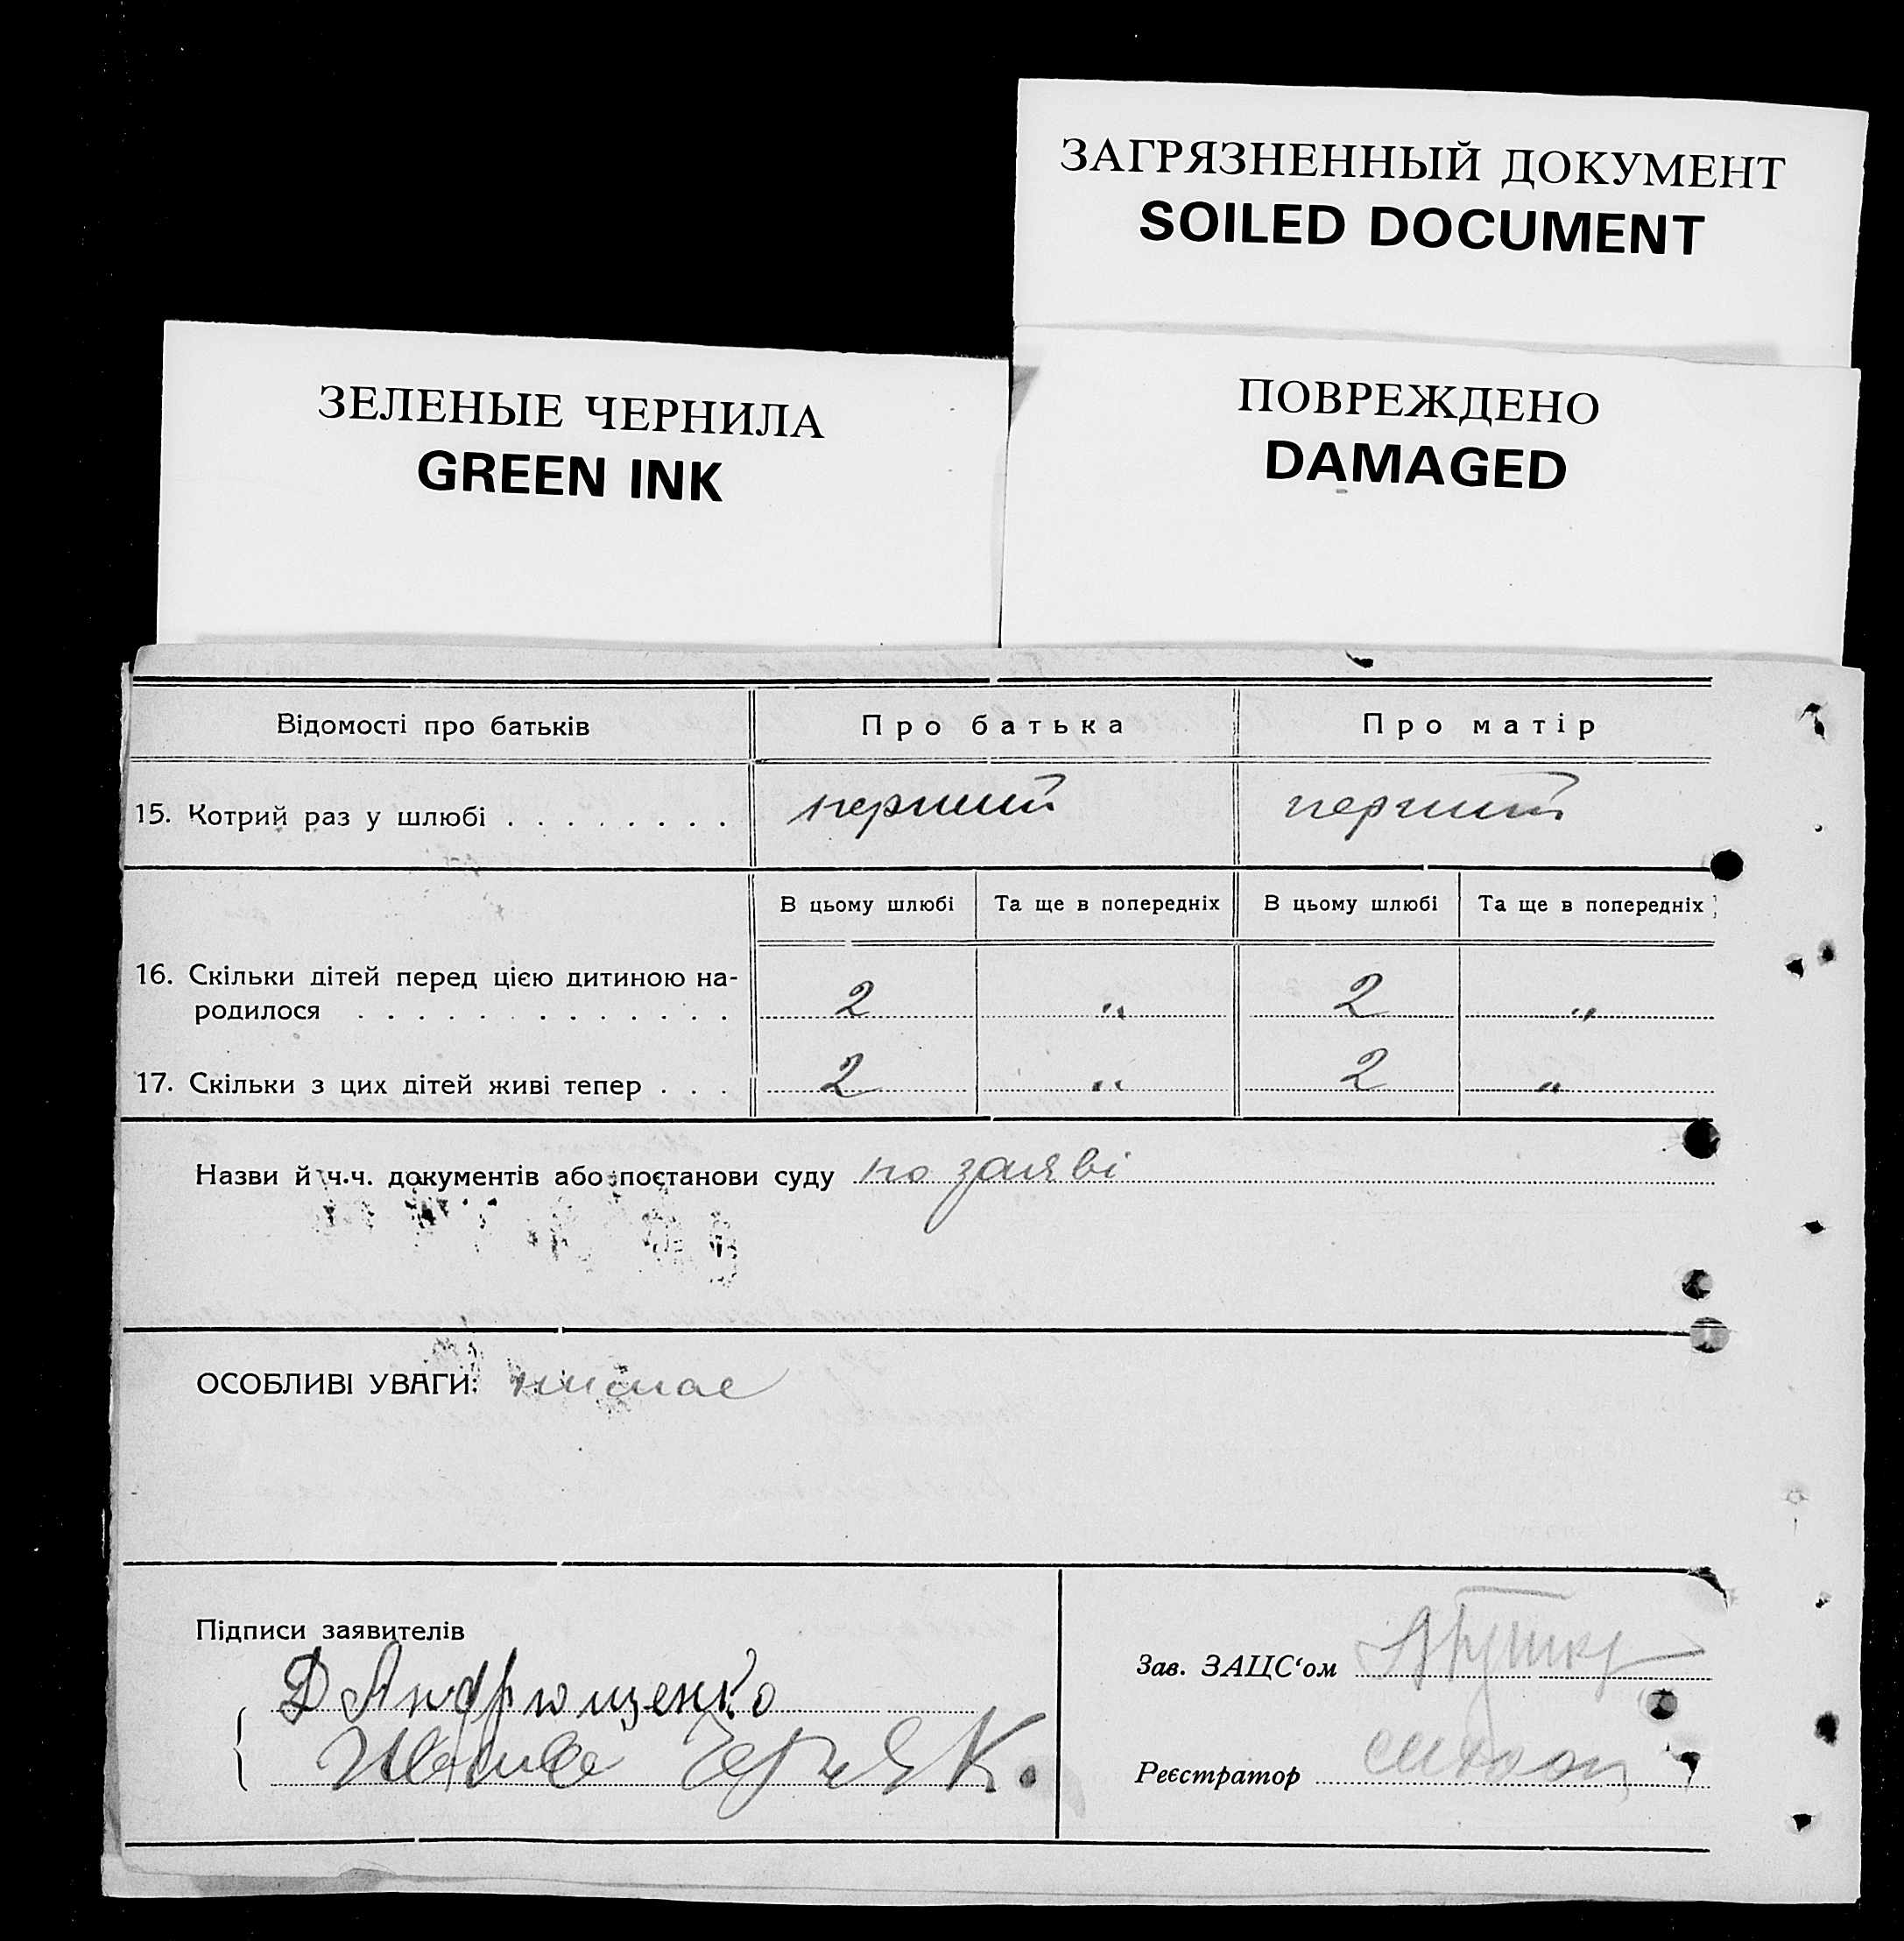 ЗАГРЯЗНЕННЫЙ ДОКУМЕНТ
SOILED DOCUMENT
ЗЕЛЕНЫЕ ЧЕРНИЛА
GREEN INK
ПОВРЕЖДЕНО
DAMAGED
Відомості про батьків Про батька Про матір
15. Котрий раз у шлюбі . . . . . . . . перший перший
В цьому шлюбі Та ще в попередніх В цьому шлюбі Та ще в попередніх
16. Скільки дітей перед цією дитиною на-
родилося . . . . . . . . . . . . . 2 „ 2 „
17. Скільки з цих дітей живі тепер . . . 2 „ 2 „
Назви й ч.ч. документів або постанови суду по заяві
ОСОБЛИВІ УВАГИ: немає
Підписи заявителів
Д Андрющенко
Черняк.
Зав. ЗАЦС‘ом
Реєстратор